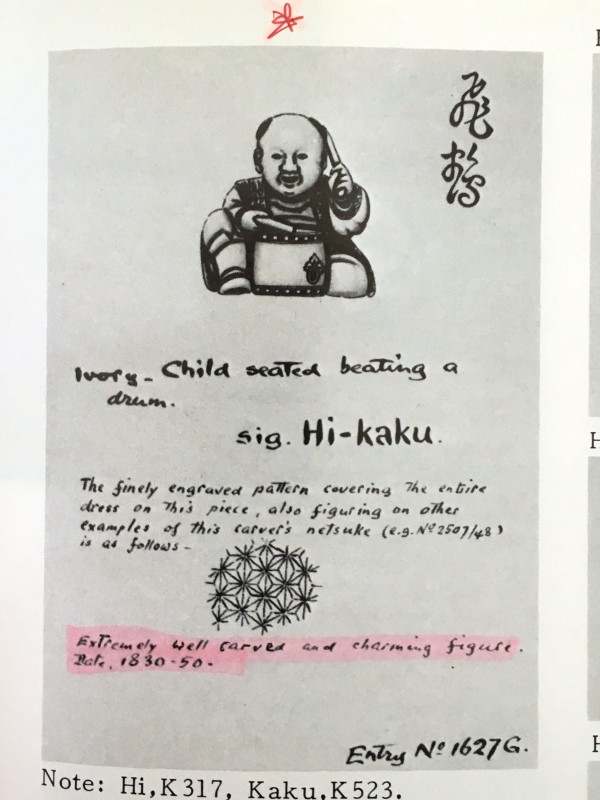 飛鶴
Ivory - Child seated beating a
drum.
sig. Hi-kaku.
The finely engraved pattern covering the entire
dress on this piece, also figuring on other
examples of this carver's netsuke (e.g. Nº 2507/48)
is as follows -
Extremely well carved and charming figure.
Date, 1830-50.
Entry Nº 1627G.
Note: Hi,K317, Kaku,K523.